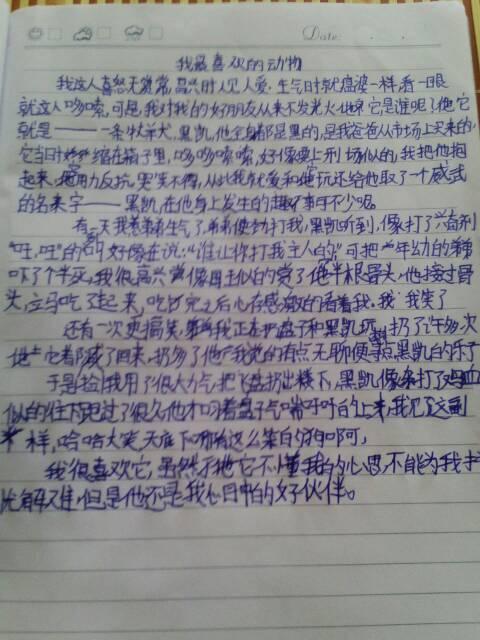 Date:
我最喜欢的动物
我这人喜怒无常,高兴时人见人爱,生气时就癌婆一样,看一眼
就这人哆嗦,可是,我对我的好朋友从来不发光火,它是谁呢?它
就是———一条牧羊犬,黑凯,他全身都是黑的,是我爸爸从市场上买来的
它当时缩在箱子里,哆哆嗦嗦,好像要上刑场似的,我把他抱
起来,用力反抗。哭笑不得,从此我就爱和他玩还给他取了一个威武
的名字——黑凯,在他身上发生的趣事可不少呢。
有一天我惹弟弟生气了,弟弟便动打我,黑凯听到,像打了兴奋剂
“旺,旺”的叫好像在说:“谁让你打我主人的”可把年幼的弟弟
吓了个半死,我很高兴像国王似的赏了他半根骨头,他接过骨
头,立马吃了起来,吃完之后心存感激的看着我,我笑了
还有一次更搞笑,我正在扔盘子和黑凯玩,扔了许多次
他都叼了回来,扔多了他我觉的有点无聊便拿黑凯的乐子
于是捡我用了很大力气,把飞盘扔出楼下,黑凯像打了鸡血
似的往下跑过了很久他才叼着盘子气喘吁吁的上来,我见这副
样,哈哈大笑,天底下哪有这么笨的狗啊,
我很喜欢它,虽然它不懂我的心思,不能为我
解难,但是他还是我心目中的好伙伴。